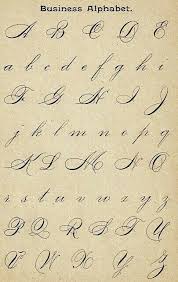 Business Alphabet.
A B C D E
a b c d e f g h i
F G H I J
j k l m n o p q
K L M N O
r s t u v w x y z
P Q R S T U
V W X Y Z